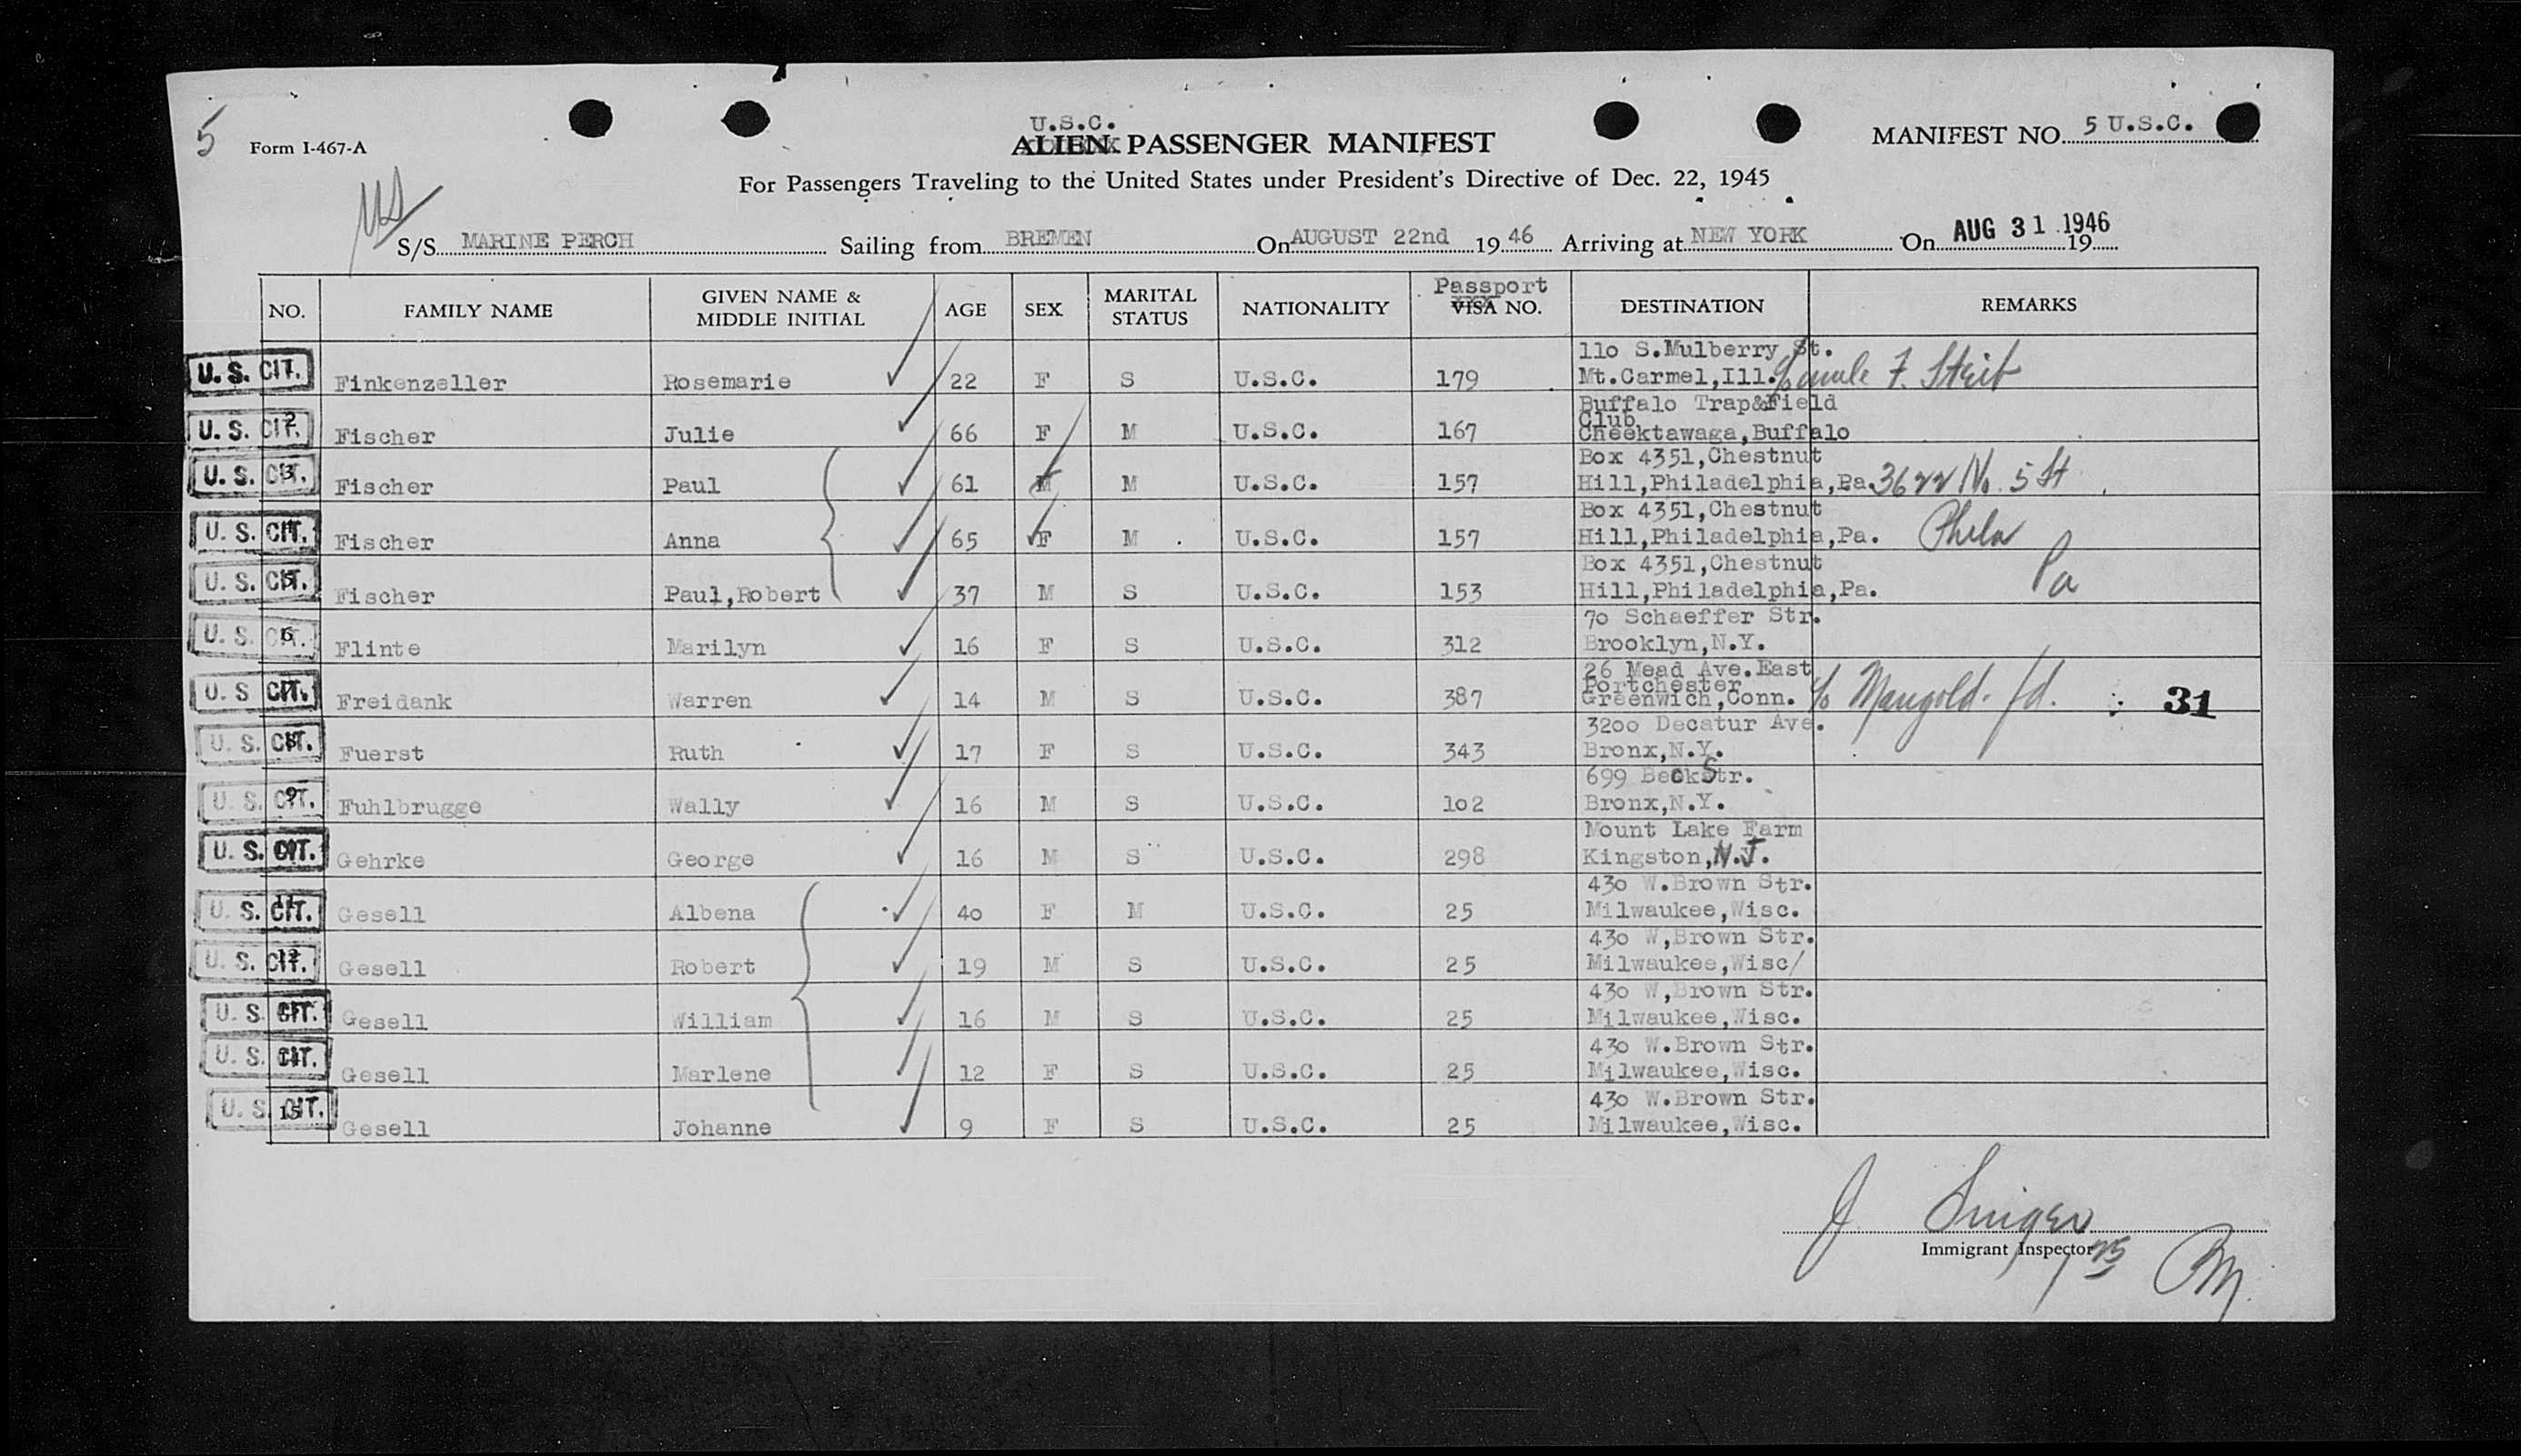 5
Form I-467-A
U.S.C.
ALIEN PASSENGER MANIFEST
MANIFEST NO. 5 U.S.C.
For Passengers Traveling to the United States under President's Directive of Dec. 22, 1945
S/S MARINE PERCH Sailing from BREMEN On AUGUST 22nd 19 46 Arriving at NEW YORK On AUG 31 1946 19
NO. FAMILY NAME GIVEN NAME & MIDDLE INITIAL AGE SEX MARITAL STATUS NATIONALITY Passport VISA NO. DESTINATION REMARKS
110 S.Mulberry St.
U. S. CIT. 1 Finkenzeller Rosemarie 22 F S U.S.C. 179 Mt.Carmel,Ill. F. Streit
Buffalo Trap&Field
Club
U. S. CIT. 2 Fischer Julie 66 F M U.S.C. 167 Cheektawaga,Buffalo
Box 4351,Chestnut
U. S. CIT. 3 Fischer Paul 61 M M U.S.C. 157 Hill,Philadelphia,Pa. 3622 No. 5 St
Box 4351,Chestnut
U. S. CIT. 4 Fischer Anna 65 F M U.S.C. 157 Hill,Philadelphia,Pa. Phila
Box 4351,Chestnut Pa
U. S. CIT. 5 Fischer Paul,Robert 37 M S U.S.C. 153 Hill,Philadelphia,Pa.
70 Schaeffer Str.
U. S. CIT. 6 Flinte Marilyn 16 F S U.S.C. 312 Brooklyn,N.Y.
26 Mead Ave.East
Portchester
U. S. CIT. 7 Freidank Warren 14 M S U.S.C. 387 Greenwich,Conn. c/o Mangold 31
3200 Decatur Ave.
U. S. CIT. 8 Fuerst Ruth 17 F S U.S.C. 343 Bronx,N.Y.
699 Beck Str.
U. S. CIT. 9 Fuhlbrugge Wally 16 M S U.S.C. 102 Bronx,N.Y.
Mount Lake Farm
U. S. CIT. Gehrke George 16 M S U.S.C. 298 Kingston,N.J.
430 W.Brown Str.
U. S. CIT. 11 Gesell Albena 40 F M U.S.C. 25 Milwaukee,Wisc.
430 W,Brown Str.
U. S. CIT. 12 Gesell Robert 19 M S U.S.C. 25 Milwaukee,Wisc/
430 W,Brown Str.
U. S. CIT. Gesell William 16 M S U.S.C. 25 Milwaukee,Wisc.
430 W.Brown Str.
U. S. CIT. Gesell Marlene 12 F S U.S.C. 25 Milwaukee,Wisc.
430 W.Brown Str.
U. S. CIT. 15 Gesell Johanne 9 F S U.S.C. 25 Milwaukee,Wisc.
J Singer
Immigrant Inspector